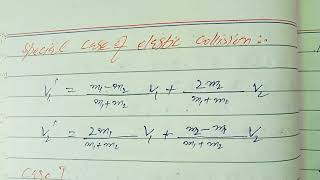 Special case of elastic collision :-
V₁' = (m₁-m₂)/(m₁+m₂) V₁ + 2m₂/(m₁+m₂) V₂
V₂' = 2m₁/(m₁+m₂) V₁ + (m₂-m₁)/(m₁+m₂) V₂
case I